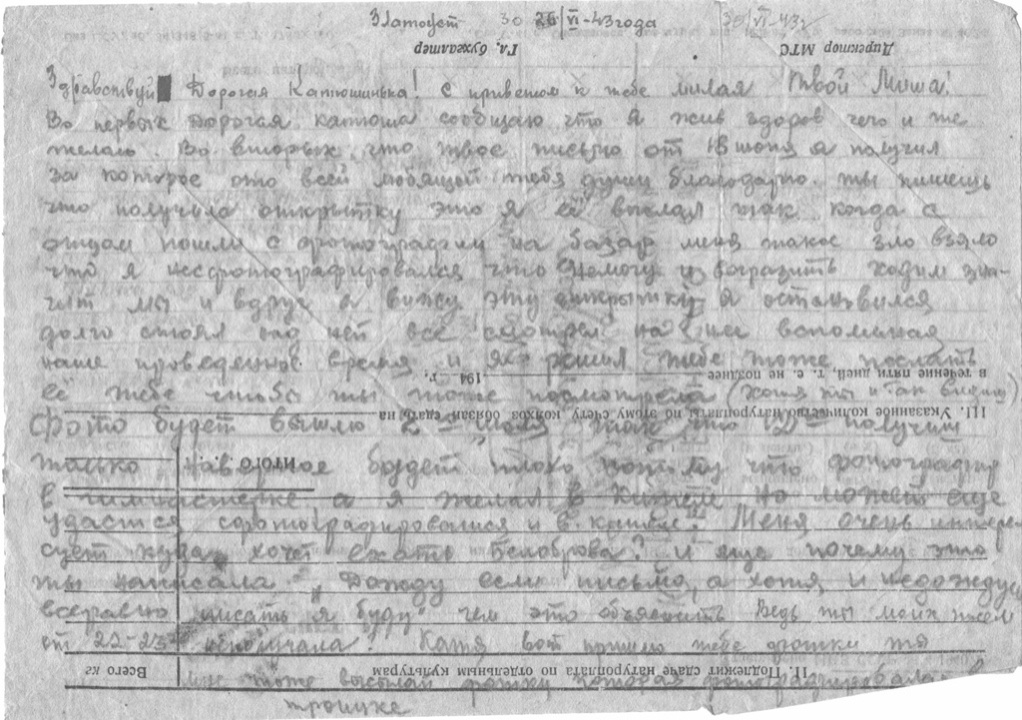 Златоуст 30 26/VI-43 года 30/VI-43г
Гл. бухгалтер Директор МТС
Здравствуй Дорогая Катюшинька! С приветом к тебе милая твой Миша!
Во первых Дорогая Катюша сообщаю что я жив здоров чего и те
желаю. Во вторых что твое письмо от 18 июня я получил
за которое ото всей любящей тебя души благодарю. ты пишешь
что получила открытку это я её выслал так когда с
отцом пошли с фотографии на базар меня такое зло взяло
что я несфотографировался что немогу изобразить ходим зна-
чит мы и вдруг я вижу эту открытку я остановился
долго стоял над ней все смотрел на нее вспоминая
наше проведенное время и я решил тебе тоже послать
в течение пяти дней, т. е. не позднее 194 г.
её тебе чтобы ты тоже посмотрела (хотя ты и так видиш)
III. Указанное количество натуроплаты по этому счету, колхоз обязан сдать на
Фото будет вышлю 2 июля так что получиш
ИТОГО . . .
только наверное будет плохо потому что фотография
в гимнастерке а я желал в кителе но может еще
удастся сфотографироватися и в кителе. Меня очень интере-
сует куда хочет ехать Белоброва? и еще почему это
ты написала "Дожду если письмо, а хотя и недождусь
всеравно писать я буду" чем это объяснить Ведь ты моих писем
от 22-23 неполучала. Катя вот пришлю тебе фотки ты
II. Подлежит сдаче натуроплата по отдельным культурам Всего кг
мне тоже высылай фотку которая
троицке